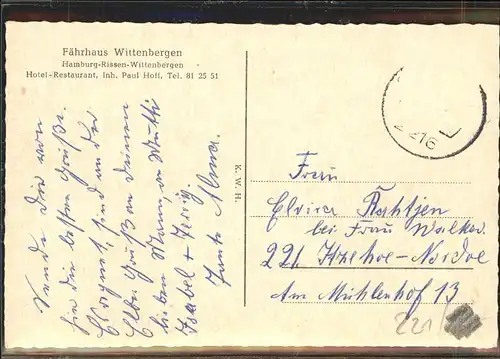 Fährhaus Wittenbergen
Hamburg-Rissen-Wittenbergen
Hotel-Restaurant, Inh. Paul Hoff, Tel. 81 25 51
Sende Dir von
hier die besten Grüße.
sind an der
Elbe. Gruß an Deinen
lieben Mann, Mutti
Isabel +
Tante Alma.
K. W. H.
Frau
Elvira Rahtjen
bei Frau Walker
221 Itzehoe-Nordoe
Am Mühlenhof 13
221